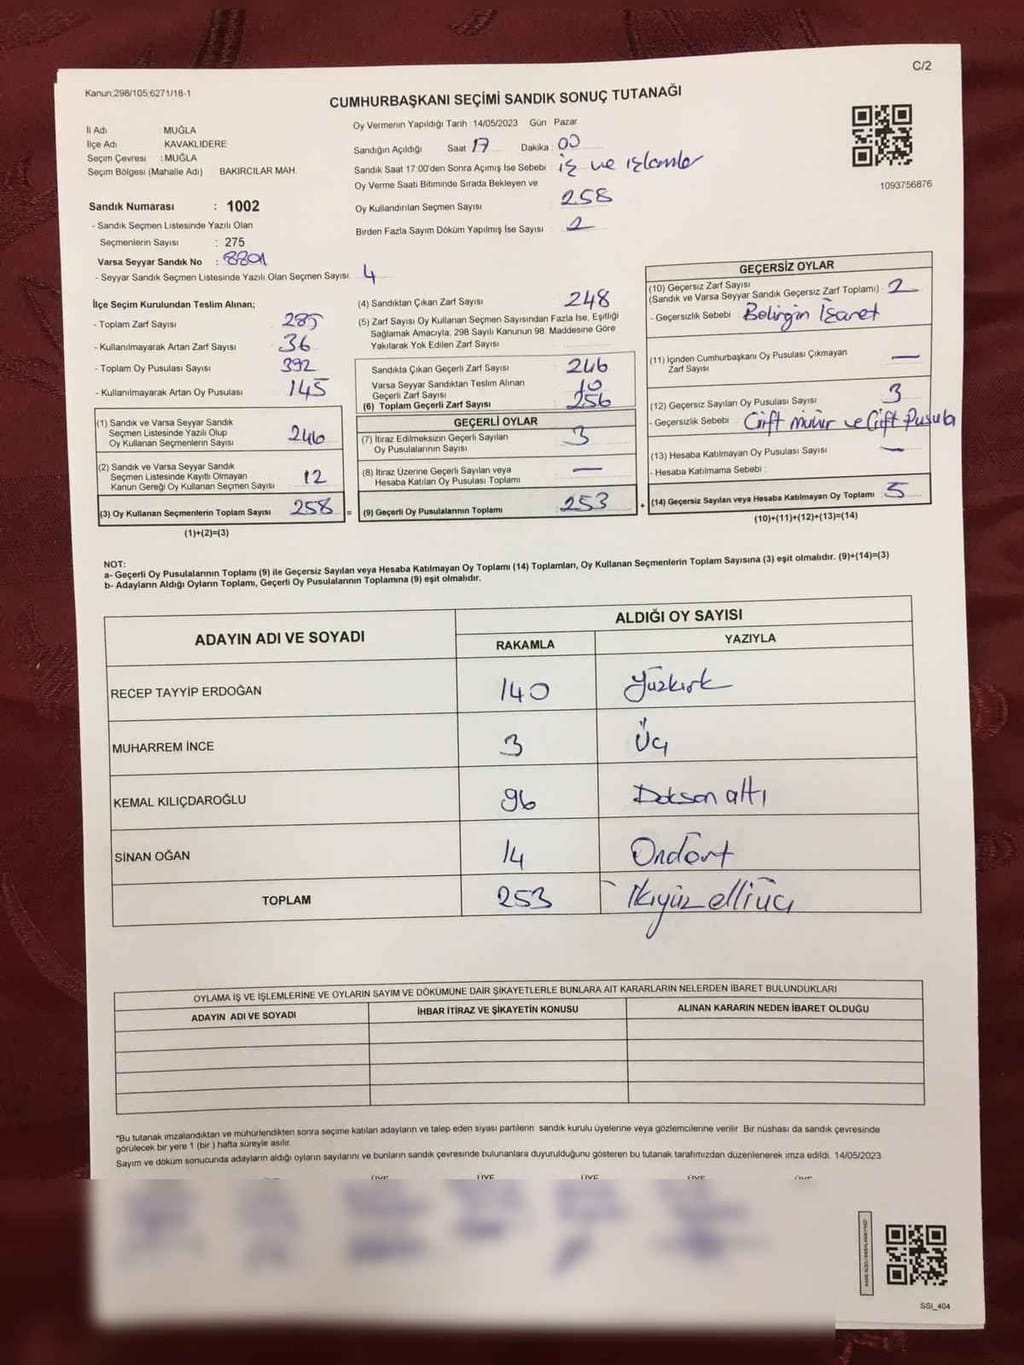 C/2
Kanun;298/105;6271/18-1
CUMHURBAŞKANI SEÇİMİ SANDIK SONUÇ TUTANAĞI
İl Adı MUĞLA
İlçe Adı KAVAKLIDERE
Seçim Çevresi : MUĞLA
Seçim Bölgesi (Mahalle Adı) BAKIRCILAR MAH.
Sandık Numarası : 1002
- Sandık Seçmen Listesinde Yazılı Olan
Seçmenlerin Sayısı : 275
Varsa Seyyar Sandık No : 8801
- Seyyar Sandık Seçmen Listesinde Yazılı Olan Seçmen Sayısı: 4
Oy Vermenin Yapıldığı Tarih : 14/05/2023 Gün Pazar
Sandığın Açıldığı Saat 17 Dakika : 00
Sandık Saat 17:00'den Sonra Açımış İse Sebebi : iş ve işlemler
Oy Verme Saati Bitiminde Sırada Bekleyen ve
Oy Kullandırılan Seçmen Sayısı 258
Birden Fazla Sayım Döküm Yapılmış İse Sayısı : 2
1093756876
İlçe Seçim Kurulundan Teslim Alınan;
- Toplam Zarf Sayısı : 285
- Kullanılmayarak Artan Zarf Sayısı : 36
- Toplam Oy Pusulası Sayısı : 392
- Kullanılmayarak Artan Oy Pusulası : 145
(1) Sandık ve Varsa Seyyar Sandık
Seçmen Listesinde Yazılı Olup
Oy Kullanan Seçmenlerin Sayısı 246
(2) Sandık ve Varsa Seyyar Sandık
Seçmen Listesinde Kayıtlı Olmayan
Kanun Gereği Oy Kullanan Seçmen Sayısı 12
(3) Oy Kullanan Seçmenlerin Toplam Sayısı 258 =
(1)+(2)=(3)
(4) Sandıktan Çıkan Zarf Sayısı : 248
(5) Zarf Sayısı Oy Kullanan Seçmen Sayısından Fazla İse, Eşitliği
Sağlamak Amacıyla, 298 Sayılı Kanunun 98. Maddesine Göre
Yakılarak Yok Edilen Zarf Sayısı
Sandıkta Çıkan Geçerli Zarf Sayısı : 246
Varsa Seyyar Sandıktan Teslim Alınan
Geçerli Zarf Sayısı : 10
(6) Toplam Geçerli Zarf Sayısı : 256
GEÇERLİ OYLAR
(7) İtiraz Edilmeksizin Geçerli Sayılan
Oy Pusulalarının Sayısı : 3
(8) İtiraz Üzerine Geçerli Sayılan veya
Hesaba Katılan Oy Pusulası Toplamı : —
(9) Geçerli Oy Pusulalarının Toplamı : 253 +
GEÇERSİZ OYLAR
(10) Geçersiz Zarf Sayısı
(Sandık ve Varsa Seyyar Sandık Geçersiz Zarf Toplamı) : 2
- Geçersizlik Sebebi : Belirgin İşaret
(11) İçinden Cumhurbaşkanı Oy Pusulası Çıkmayan
Zarf Sayısı —
(12) Geçersiz Sayılan Oy Pusulası Sayısı : 3
- Geçersizlik Sebebi : Çift Mühür ve Çift Pusula
(13) Hesaba Katılmayan Oy Pusulası Sayısı : —
- Hesaba Katılmama Sebebi :
(14) Geçersiz Sayılan veya Hesaba Katılmayan Oy Toplamı : 5
(10)+(11)+(12)+(13)=(14)
NOT:
a- Geçerli Oy Pusulalarının Toplamı (9) ile Geçersiz Sayılan veya Hesaba Katılmayan Oy Toplamı (14) Toplamları, Oy Kullanan Seçmenlerin Toplam Sayısına (3) eşit olmalıdır. (9)+(14)=(3)
b- Adayların Aldığı Oyların Toplamı, Geçerli Oy Pusulalarının Toplamına (9) eşit olmalıdır.
ADAYIN ADI VE SOYADI ALDIĞI OY SAYISI
RAKAMLA YAZIYLA
RECEP TAYYİP ERDOĞAN 140 Yüzkırk
MUHARREM İNCE 3 Üç
KEMAL KILIÇDAROĞLU 96 Doksan altı
SİNAN OĞAN 14 Ondört
TOPLAM 253 İkiyüz elliüç
OYLAMA İŞ VE İŞLEMLERİNE VE OYLARIN SAYIM VE DÖKÜMÜNE DAİR ŞİKAYETLERLE BUNLARA AİT KARARLARIN NELERDEN İBARET BULUNDUKLARI
ADAYIN ADI VE SOYADI İHBAR İTİRAZ VE ŞİKAYETİN KONUSU ALINAN KARARIN NEDEN İBARET OLDUĞU
*Bu tutanak imzalandıktan ve mühürlendikten sonra seçime katılan adayların ve talep eden siyasi partilerin sandık kurulu üyelerine veya gözlemcilerine verilir. Bir nüshası da sandık çevresinde
görülecek bir yere 1 (bir ) hafta süreyle asılır.
Sayım ve döküm sonucunda adayların aldığı oyların sayılarını ve bunların sandık çevresinde bulunanlara duyurulduğunu gösteren bu tutanak tarafımızdan düzenlenerek imza edildi. 14/05/2023
ÜYE ÜYE ÜYE ÜYE ÜYE
SSI_404